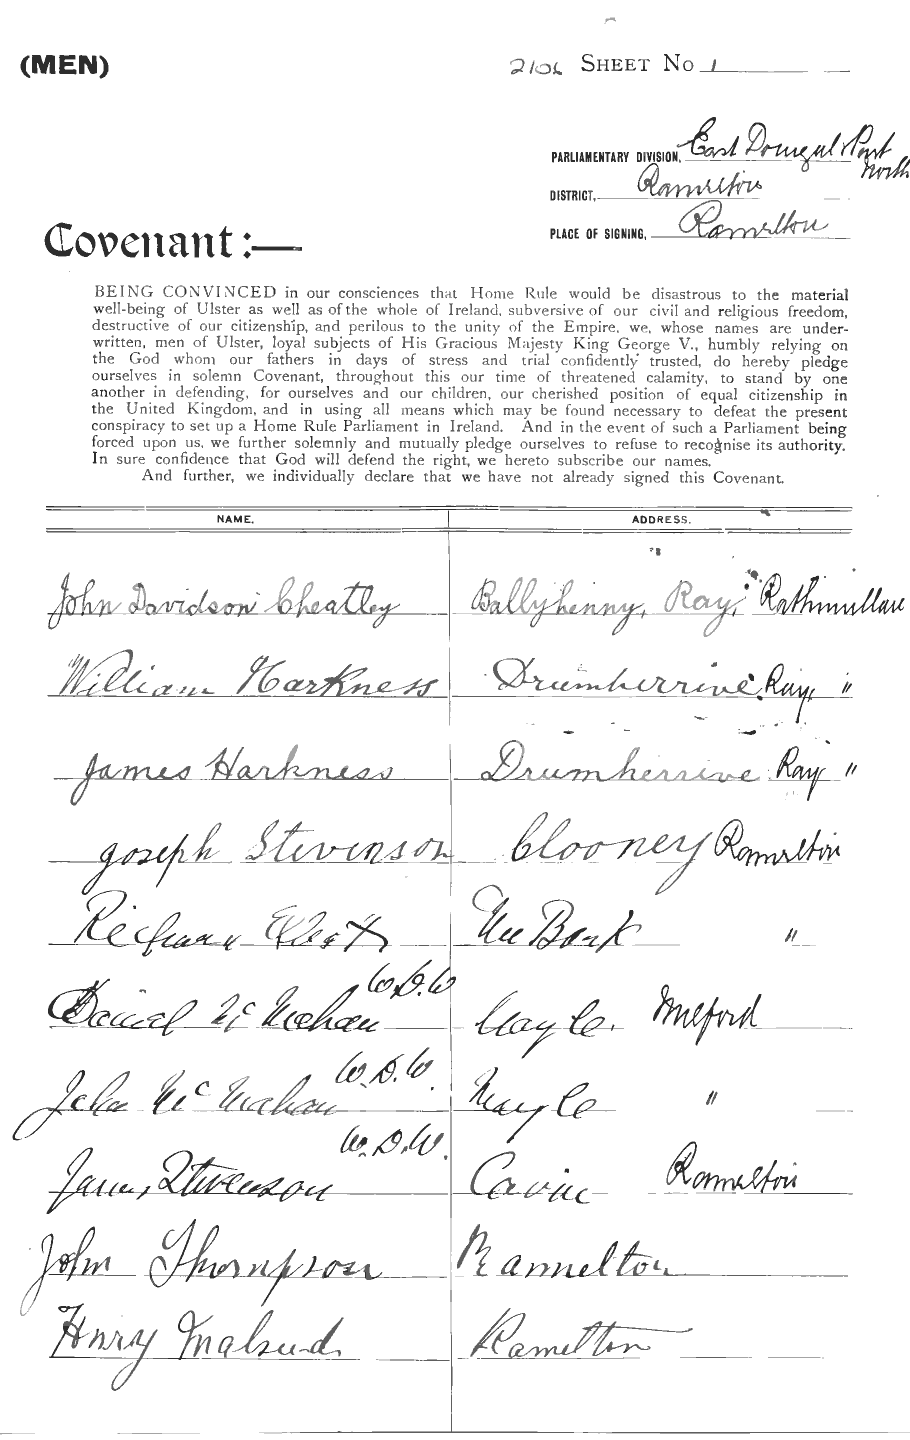 (MEN)
2106 SHEET No 1
PARLIAMENTARY DIVISION, East Donegal & Part North
DISTRICT, Ramelton
PLACE OF SIGNING, Ramelton
Covenant :—
BEING CONVINCED in our consciences that Home Rule would be disastrous to the material
well-being of Ulster as well as of the whole of Ireland, subversive of our civil and religious freedom,
destructive of our citizenship, and perilous to the unity of the Empire, we, whose names are under-
written, men of Ulster, loyal subjects of His Gracious Majesty King George V., humbly relying on
the God whom our fathers in days of stress and trial confidently trusted, do hereby pledge
ourselves in solemn Covenant, throughout this our time of threatened calamity, to stand by one
another in defending, for ourselves and our children, our cherished position of equal citizenship in
the United Kingdom, and in using all means which may be found necessary to defeat the present
conspiracy to set up a Home Rule Parliament in Ireland. And in the event of such a Parliament being
forced upon us, we further solemnly and mutually pledge ourselves to refuse to recognise its authority.
In sure confidence that God will defend the right, we hereto subscribe our names.
And further, we individually declare that we have not already signed this Covenant.
NAME. ADDRESS.
John Davidson Cheatley Ballyhenny, Ray, Rathmullan
William Harkness Drumherrive Ray, "
James Harkness Drumherrive Ray "
Joseph Stevenson Clooney Ramelton
Richard Bank "
Daniel McMahan W.D.W Milford
John McMahan W.D.W. "
James Stevenson W.D.W. Ramelton
John Thompson Ramelton
Henry Ramelton